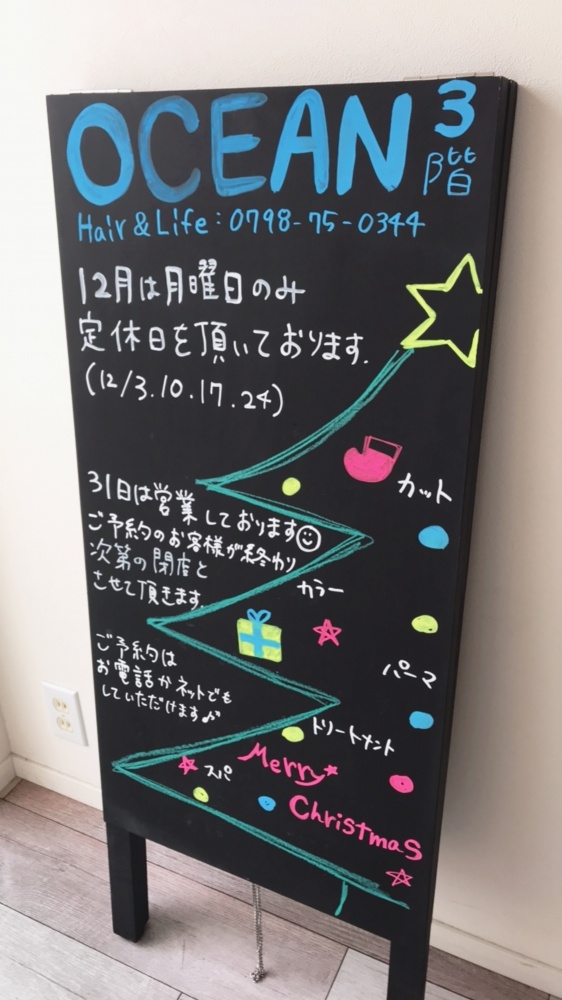 OCEAN 3階
Hair & Life : 0798-75-0344
12月は月曜日のみ
定休日を頂いております.
(12/3.10.17.24)
31日は営業しております
ご予約のお客様が終わり
次第の閉店と
させて頂きます.
ご予約は
お電話かネットでも
していただけます♪
カット
カラー
パーマ
トリートメント
スパ
Merry
Christmas